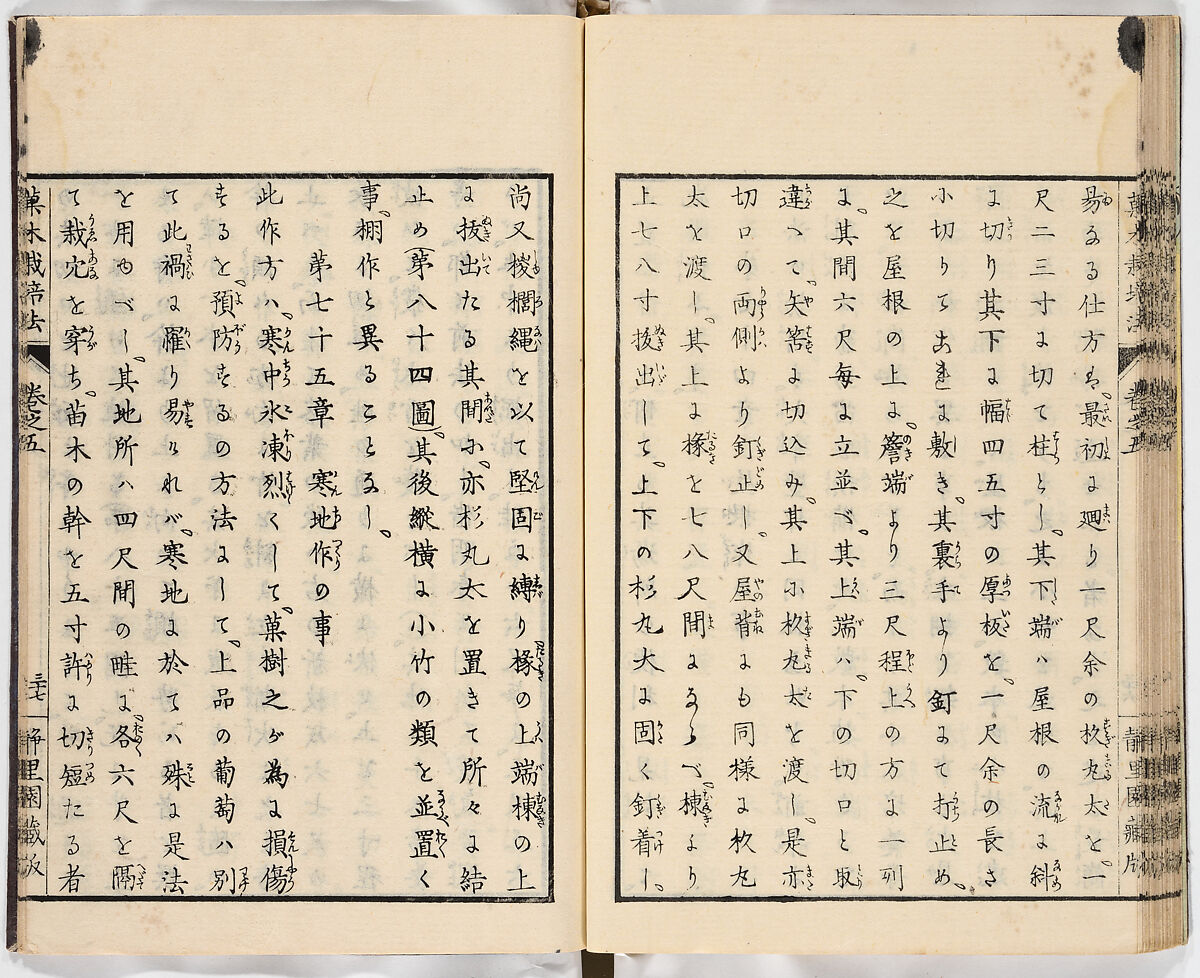 易なる仕方は、最初に廻り一尺余の杉丸太を、一
尺二三寸に切て柱とし、其下端ハ屋根の流に斜
に切り其下に幅四五寸の厚板を、一尺余の長さ
小切りて是に敷き、其裏手より釘にて打止め、
之を屋根の上に、簷端より三尺程上の方に一列
に、其間六尺毎に立並べ、其上端ハ、下の切口と取
違へて、矢筈に切込み、其上に杉丸太を渡し、是亦
切口の両側より釘止し、又屋背にも同様に杉丸
太を渡し、其上に椽を七八尺間にならべ、棟より
上七八寸抜出して、上下の杉丸太に固く釘着し、
尚又椶櫚縄を以て堅固に縛り、椽の上端棟の上
に抜出たる其間に、亦杉丸太を置きて所々に結
止め(第八十四圖)其後縱横に小竹の類を並置く
事、棚作と異ることなし、
第七十五章 寒地作の事
此作方ハ、寒中氷凍烈くして、菓樹之が為に損傷
するを、預防するの方法にして、上品の葡萄ハ別
て此禍に罹り易けれバ、寒地に於てハ殊に是法
を用ゆべし、其地所ハ四尺間の畦に、各六尺を隔
て栽穴を穿ち、苗木の幹を五寸許に切短たる者
菓木栽培法 卷之五 三十七 静里園藏版